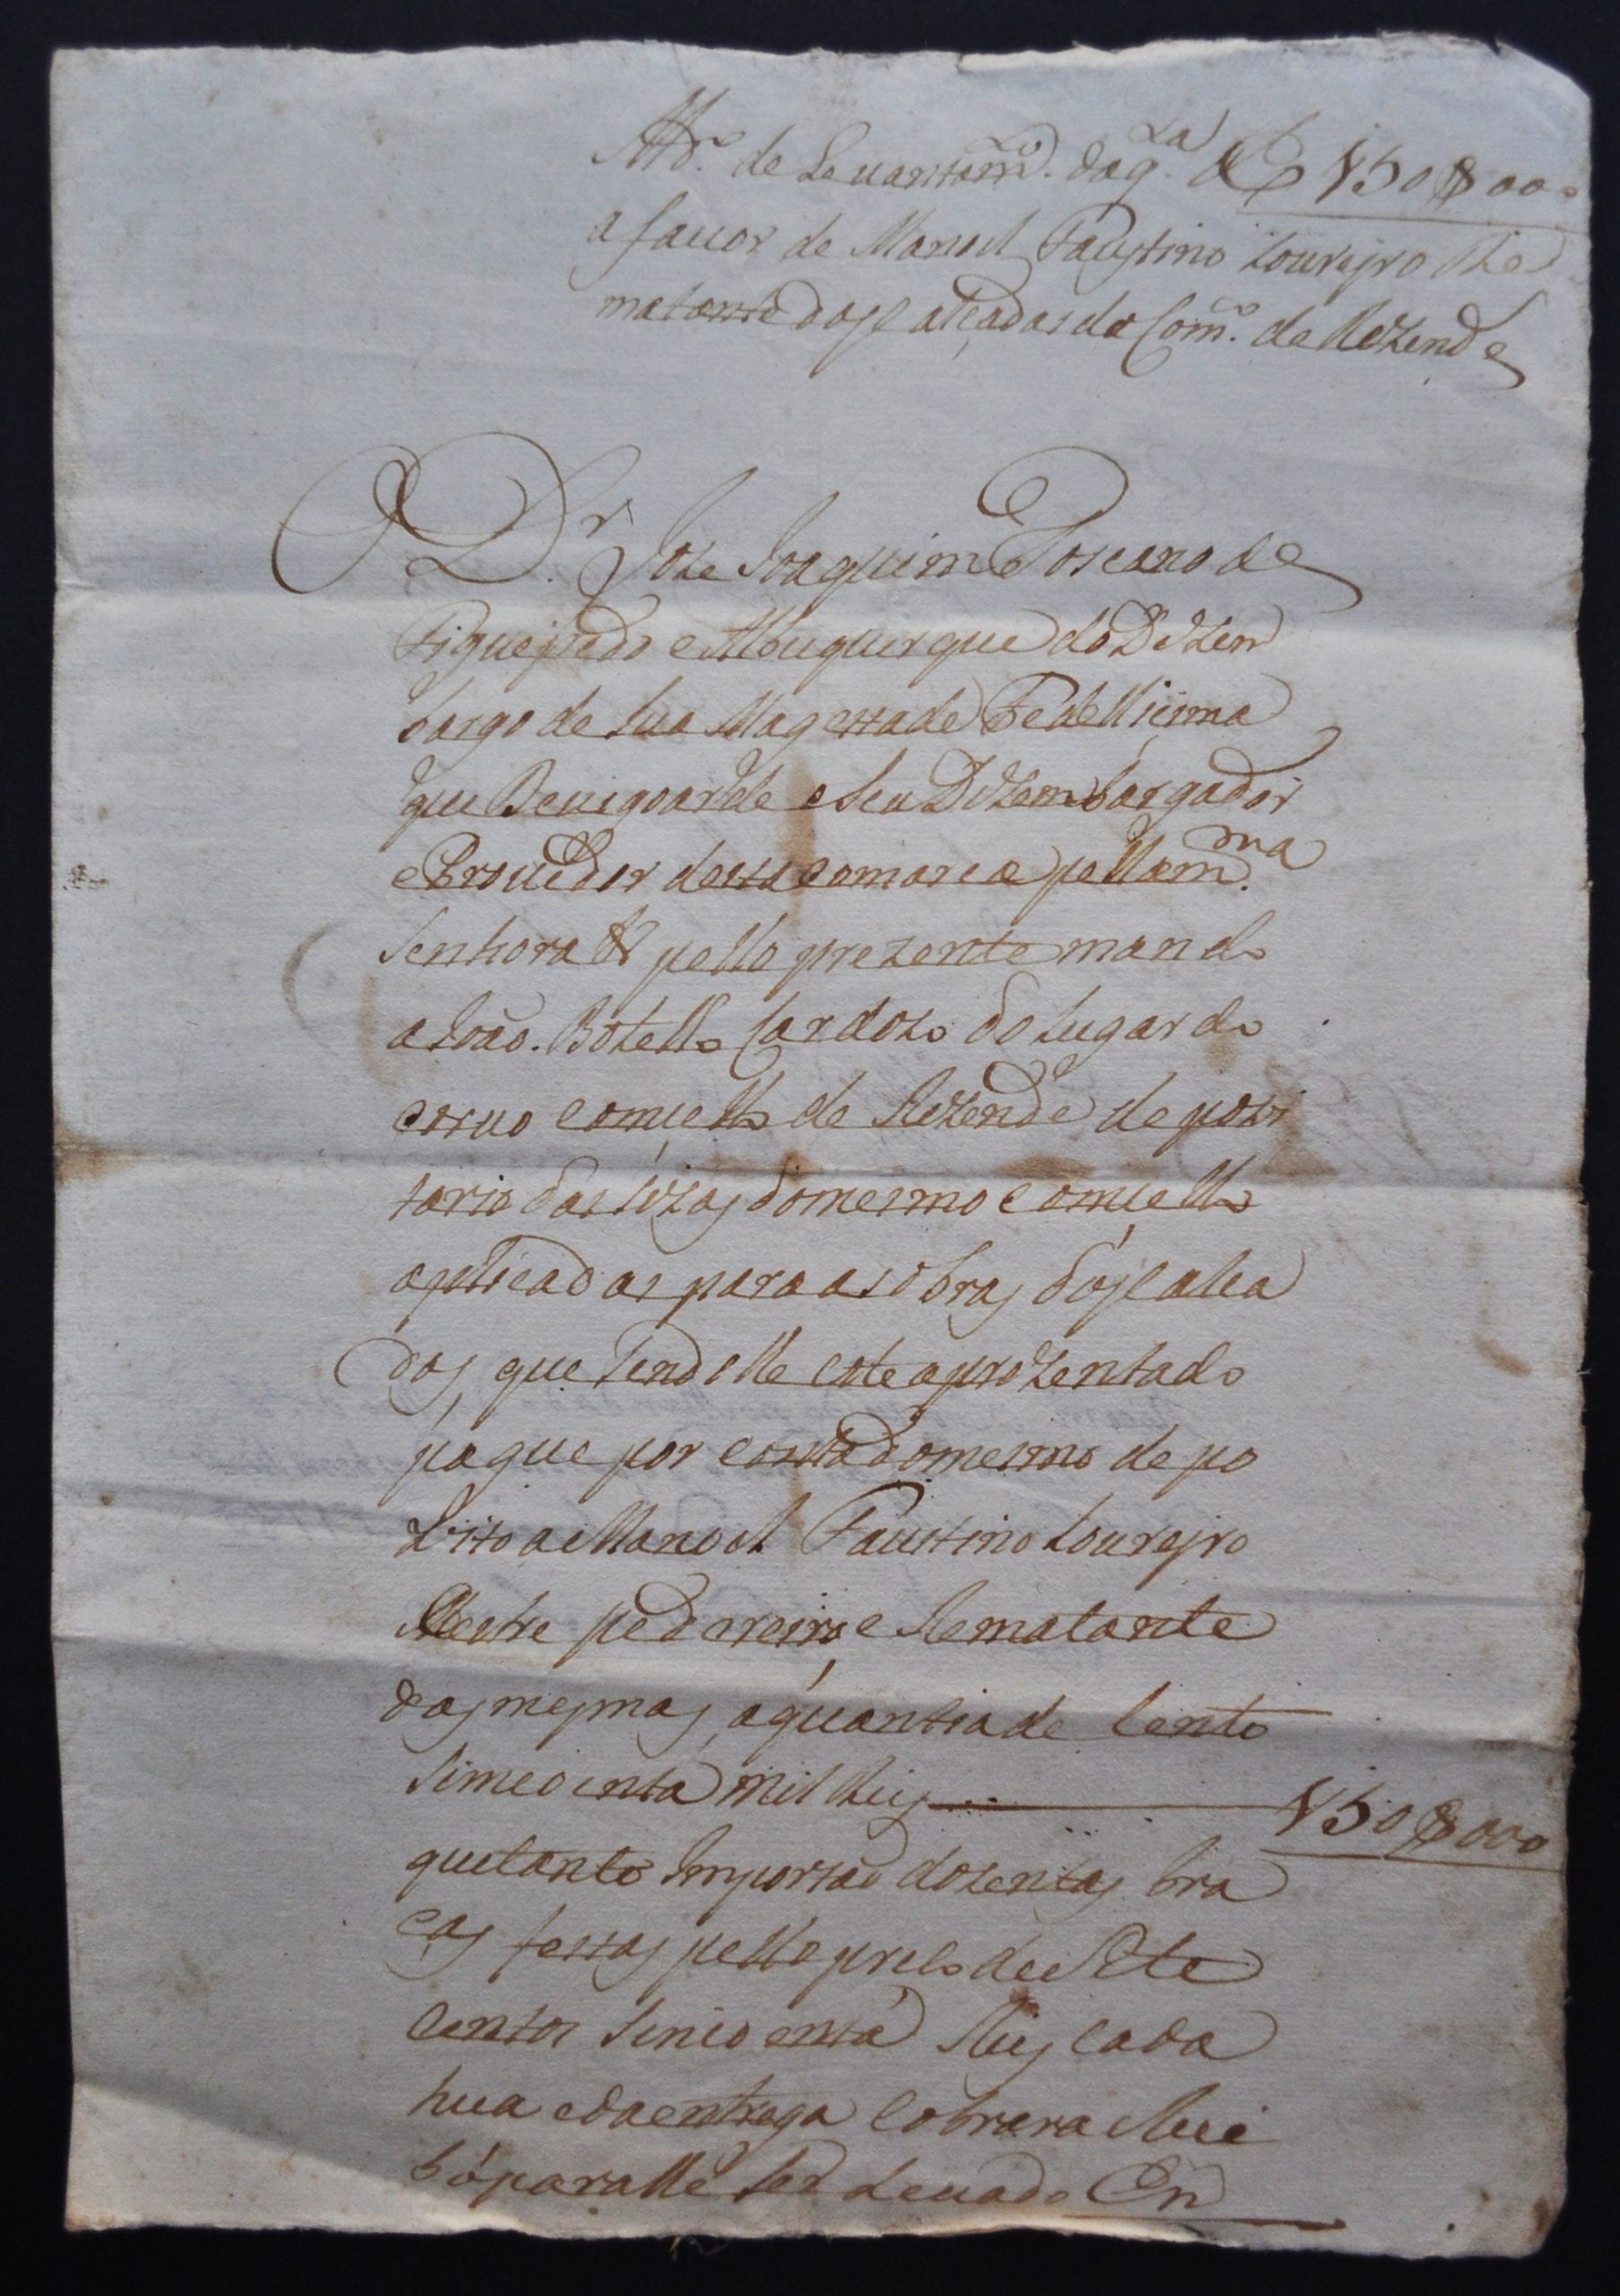 Md.º de Levantam.to da q.ta de 150$000
a favor de Manoel Faustino Loureyro Re
matante das calcadas do Com.º de Rezende
O D.r Joze Joaquim Toscano de
Figueyredo e Albuquerque do Dezem
bargo de sua Magestade Fedellicima
que Deus goarde e seu Dezembargador
e Provedor desta comarca pella m.ma
Senhora & pello prezente mando
a João Botelho Cardozo do lugar do
corvo comcelho de Rezende depozi
tario das sizas do mesmo comcelho
aplicadas para as obras das calca
das, que sendolhe este aprezentado
pague por conta do mesmo depo
zito a Manoel Faustino Loureyro
Mestre pedreiro e Rematante
das mesmas, a quantia de Cento
Sincoenta mil Reis 150$000
que tanto Importão dozentas bra
cas feitas pello preco de Sete
centos sincoenta Reis cada
hua e da entrega cobrara Reci
bo para lhe ser Levado Em